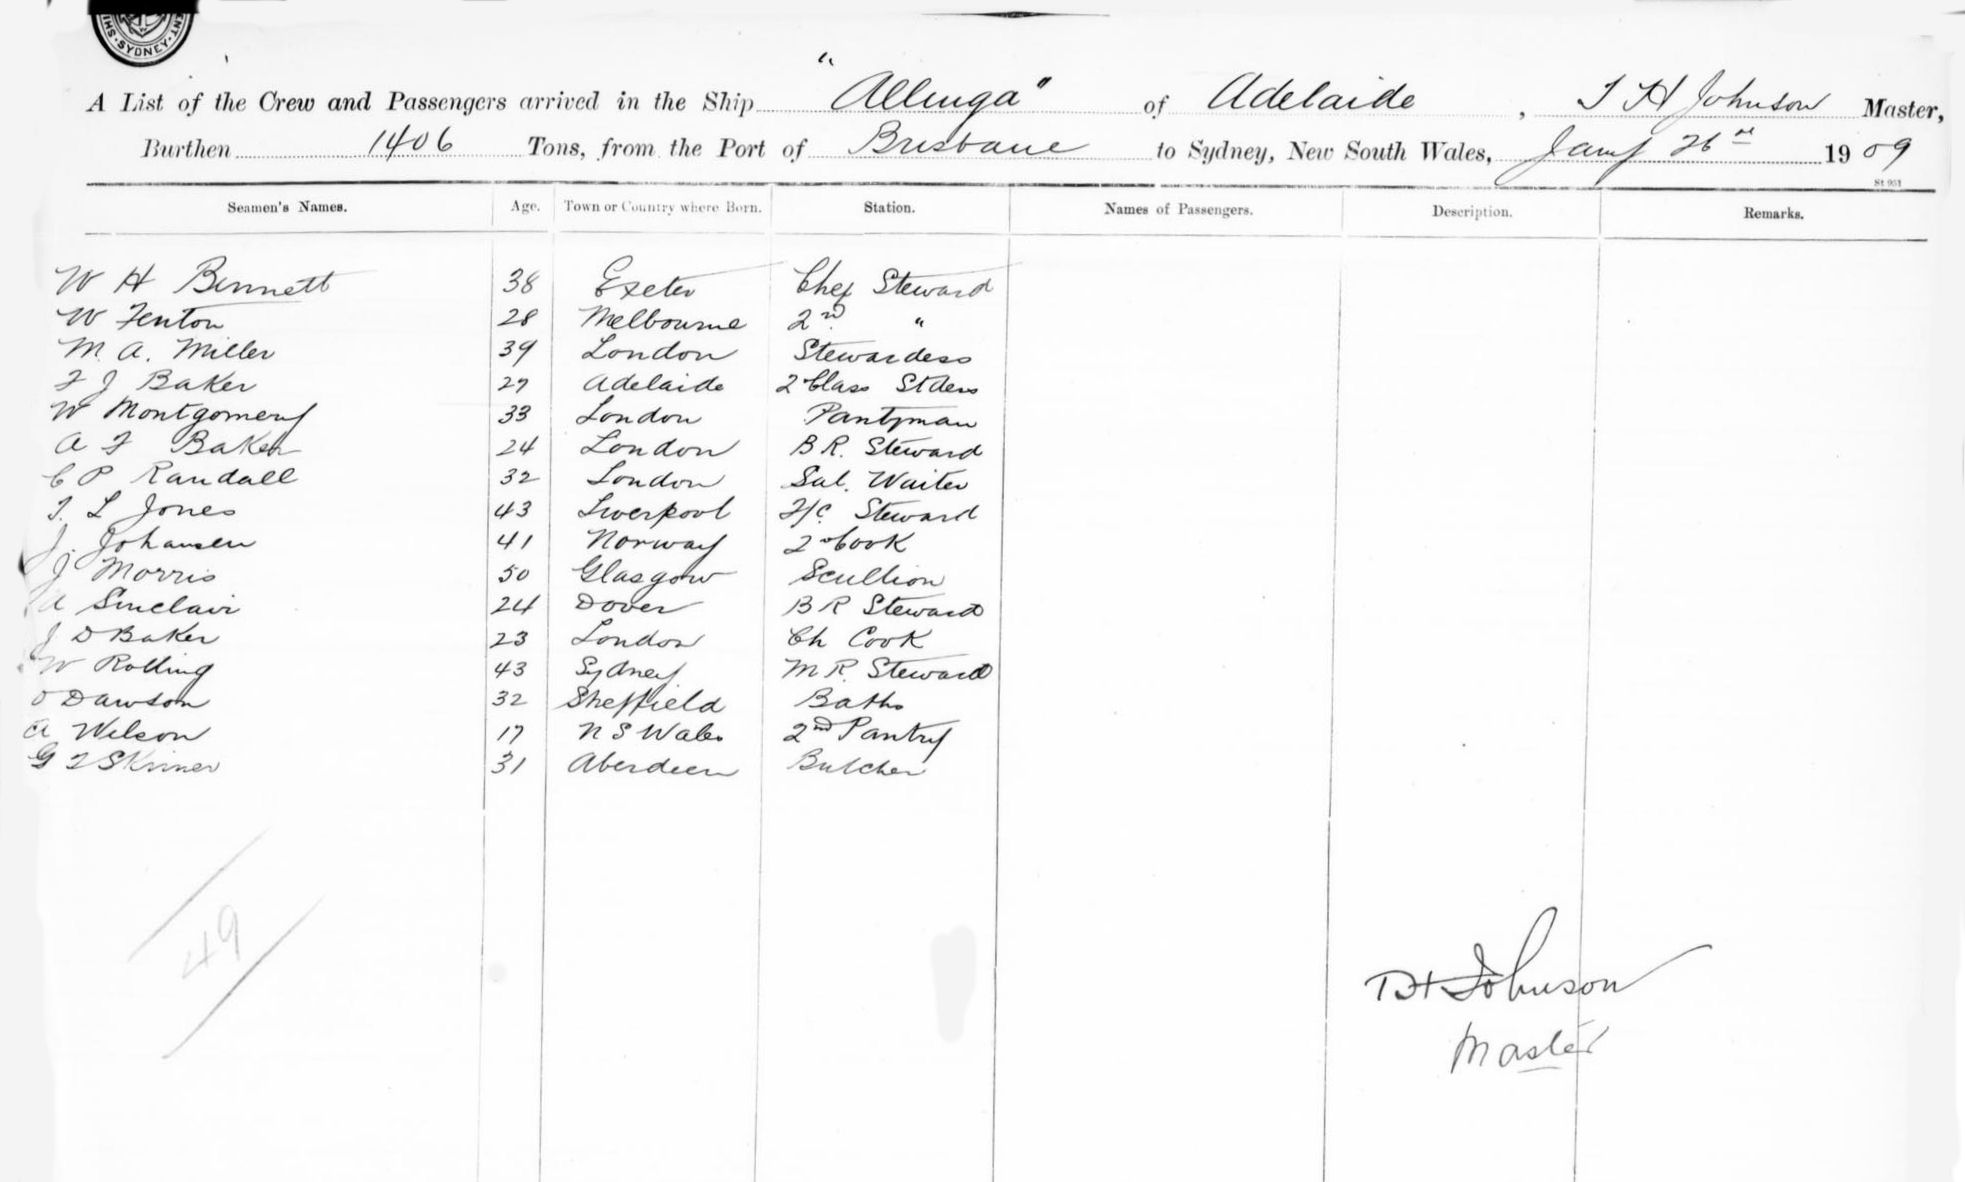 SYDNEY
A List of the Crew and Passengers arrived in the Ship "Allinga" of Adelaide, T H Johnson Master,
Burthen 1406 Tons, from the Port of Brisbane to Sydney, New South Wales, Jany 26th 1909
St 951
Seamen's Names. Age. Town or Country where Born. Station. Names of Passengers. Description. Remarks.
W H Bennett 38 Exeter Chef Steward
W Fenton 28 Melbourne 2nd "
M. A. Miller 39 London Stewardess
F J Baker 27 Adelaide 2 Class Stdess
W Montgomery 33 London Pantryman
A F Baker 24 London B R. Steward
C P Randall 32 London Sal. Waiter
T. L Jones 43 Liverpool F/C Steward
J. Johansen 41 Norway 2nd Cook
J Morris 50 Glasgow Scullion
A Sinclair 24 Dover B R Steward
J D Baker 23 London Ch Cook
W Rolling 43 Sydney M R. Steward
O Dawson 32 Sheffield Baths
A Wilson 17 N S Wales 2nd Pantry
G F Skinner 31 Aberdeen Butcher
49
TH Johnson
Master